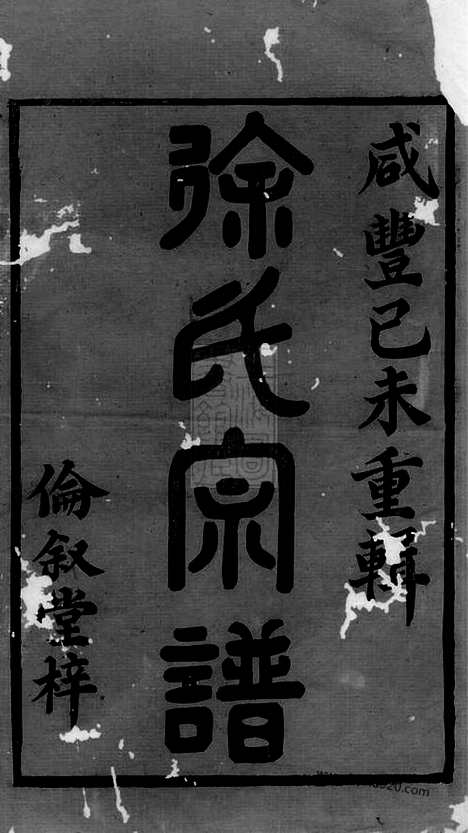 咸豐己未重輯
徐氏宗譜
倫敘堂梓